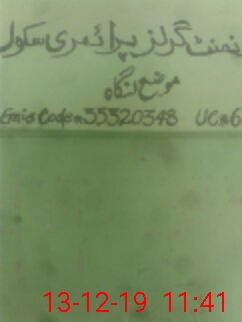 نمنٹ گرلز پرائمری سکول
موضع لنگاہ
Emis Code=33320348 UC#6
13-12-19 11:41